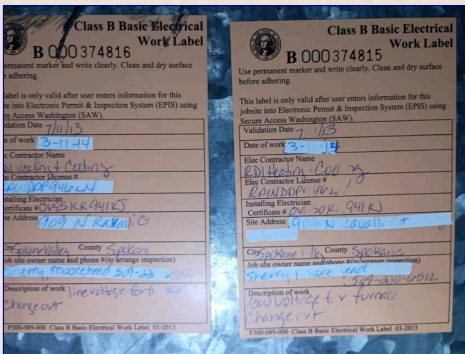 Class B Basic Electrical
Work Label
B 000374816
permanent marker and write clearly. Clean and dry surface
adhering.
label is only valid after user enters information for this
into Electronic Permit & Inspection System (EPIS) using
Access Washington (SAW).
Validation Date 7/11/13
of work 3-11-14
Contractor Name
Heating + Cooling
Elec Contractor License #
Installing Electrician
Certificate #
Site Address 909 N
City Spokane Valley County Spokane
Job site owner name and phone # (to arrange inspection)
Sherry
Description of work line voltage for
changeout
F500-089-000 Class B Basic Electrical Work Label 03-2013
Class B Basic Electrical
Work Label
B 000374815
Use permanent marker and write clearly. Clean and dry surface
before adhering.
This label is only valid after user enters information for this
jobsite into Electronic Permit & Inspection System (EPIS) using
Secure Access Washington (SAW).
Validation Date
Date of work 3-11-14
Elec Contractor Name
RDI Heating + Cooling
Elec Contractor License #
Installing Electrician
Certificate # 941KJ
Site Address
City Spokane County Spokane
Job site owner name and phone # (to arrange inspection)
Sherry
Description of work
low voltage furnace
changeout
F500-089-000 Class B Basic Electrical Work Label 03-2013